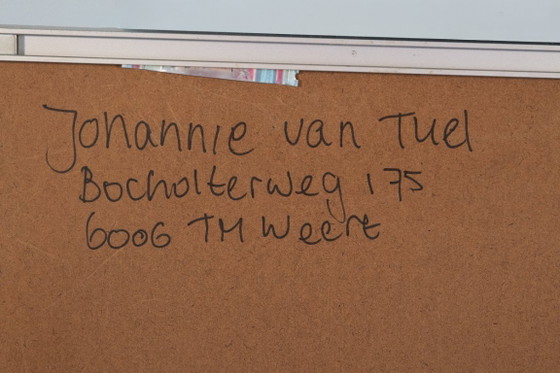 Johannie van Tuel
Bocholterweg 175
6006 TM Weert